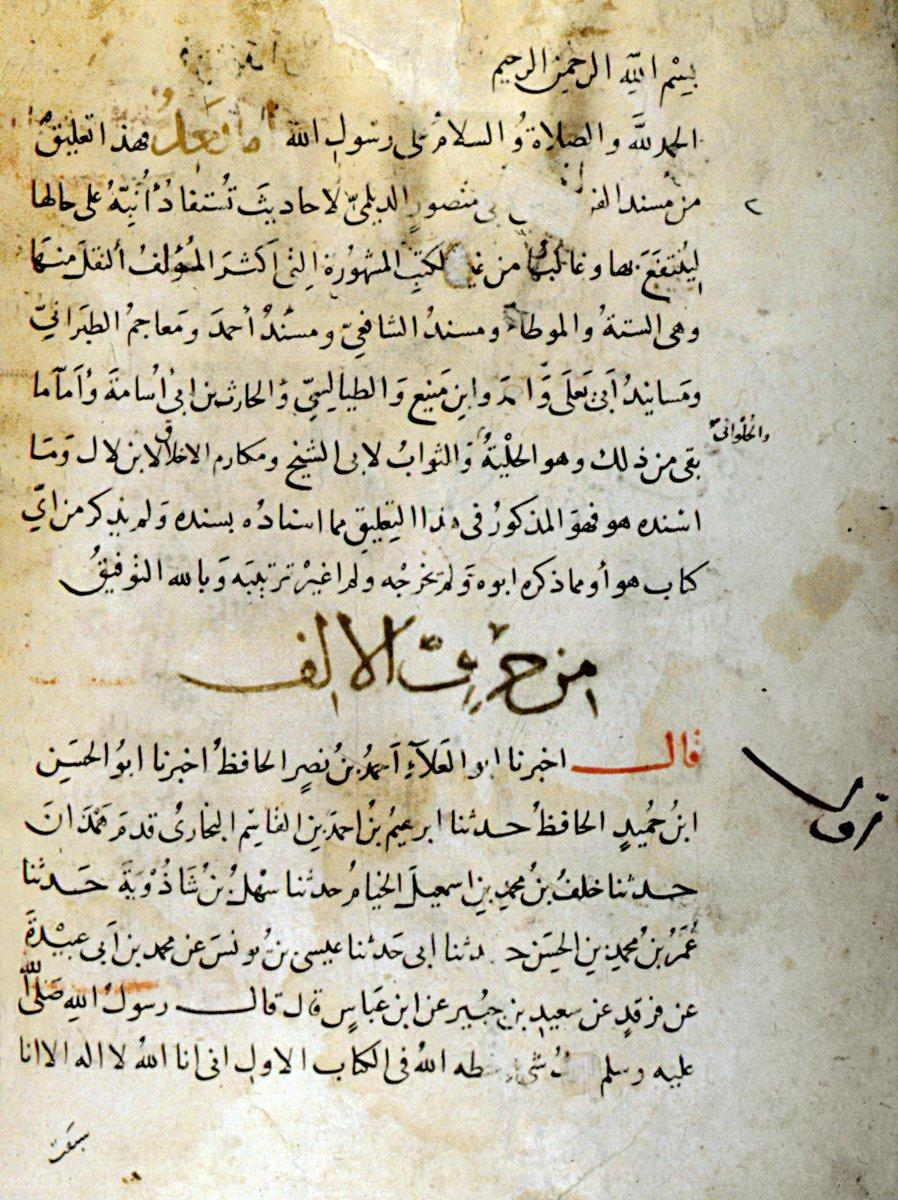 بسم الله الرحمن الرحيم
الحمد لله والصلاة والسلام على رسول الله أما بعد فهذا تعليق
من مسند الفر بى منصور الديلمي لاحاديث تستفاد أنبّه على حالها
لينتفع بها وغالبها من غير الكتب المشهورة التى اكثر المؤلف النقل منها
وهى الستة والموطا ومسند الشافعي ومسند أحمد ومعاجم الطبراني
ومسانيد أبى يعلى وأحمد وابن منيع والطيالسي والحارث بن ابي أسامة وأما ما
والحلواني
بقى من ذلك وهو الحلية والثواب لابى الشيخ ومكارم الاخلاق لابن لال وما
اسنده هو فهو المذكور فى هذا التعليق مما اسناده بسنده ولم يذكر من اي
كتاب هو أو مما ذكره ابوه ولم يخرجه ولم اغير ترتيبه وبالله التوفيق
من حرف الالف
قال اخبرنا ابو العلآء احمد بن نصر الحافظ اخبرنا ابو الحسين
ابن حميد الحافظ حدثنا ابرهيم بن احمد بن القاسم البخارى قدم همدان
حدثنا خلف بن محمد بن اسمعيل الخيام حدثنا سهل بن شاذوية حدثنا
عمر بن محمد بن الحسن حدثنا ابى حدثنا عيسى بن يونس عن محمد بن أبى عبيدة
عن فرقد عن سعيد بن جبير عن ابن عباس قال قال رسول الله صلى الله
عليه وسلم شى خطه الله فى الكتاب الاول انى انا الله لا اله الا انا
سبقت